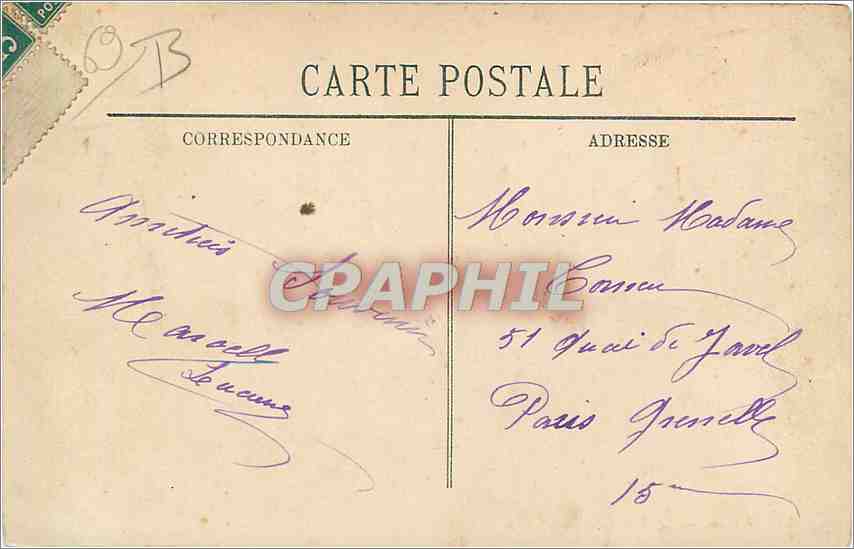 69/B
CARTE POSTALE
CORRESPONDANCE
ADRESSE
Souvenir
Marcelle
Monsieur Madame
51 Quai de Javel
Paris Grenelle
15
CPAPHIL